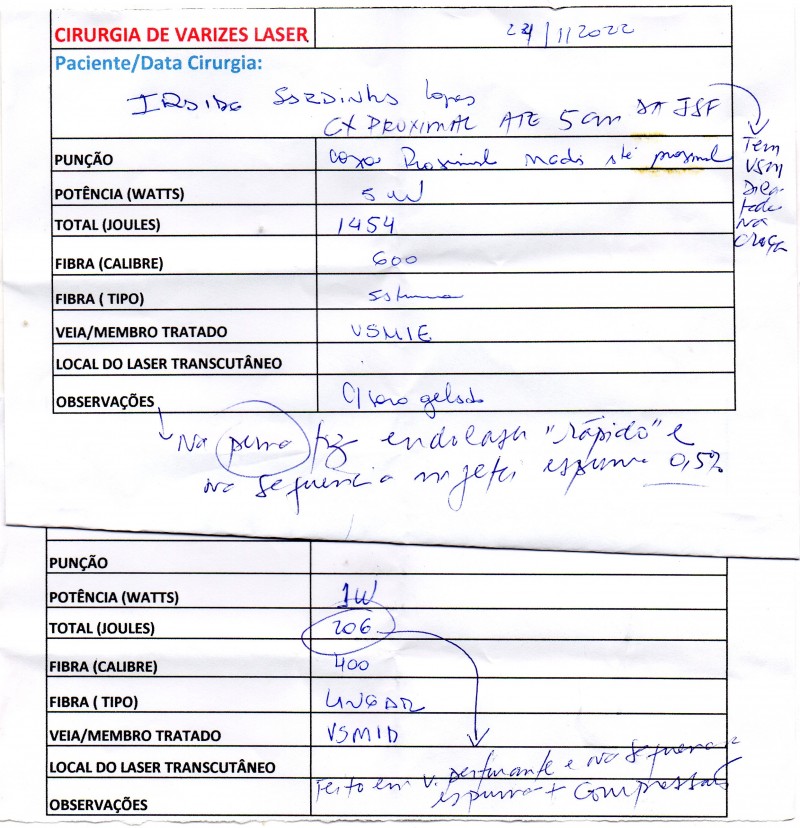 CIRURGIA DE VARIZES LASER 24/11/2022
Paciente/Data Cirurgia:
Lopes
CX PROXIMAL ATE 5 cm DA JSF
PUNÇÃO coxa Proximal até proximal
Tem
VSM
na
POTÊNCIA (WATTS) 5 W
TOTAL (JOULES) 1454
FIBRA (CALIBRE) 600
FIBRA ( TIPO)
VEIA/MEMBRO TRATADO VSMIE
LOCAL DO LASER TRANSCUTÂNEO
OBSERVAÇÕES C/ soro gelado
Na perna fiz endolaser "rápido" e
na sequencia injetei espuma 0,5%
PUNÇÃO
POTÊNCIA (WATTS) 1W
TOTAL (JOULES) 206
FIBRA (CALIBRE) 400
FIBRA ( TIPO) LINEAR
VEIA/MEMBRO TRATADO VSMID
LOCAL DO LASER TRANSCUTÂNEO
Feito em v. perfurante e na sequencia
OBSERVAÇÕES espuma + Compressão